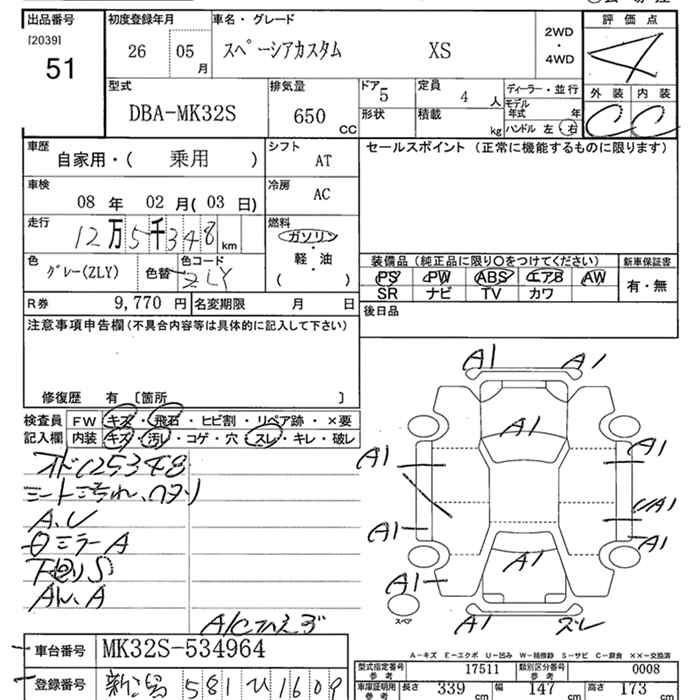 出品番号
[2039]
51
初度登録年月
26 05 月
車名・グレード
スペーシアカスタム XS
2WD
・
4WD
評価点
4
外装 内装
C C
型式
DBA-MK32S
排気量
650 CC
ドア 5
形状
定員 4 人
積載 kg
ディーラー・並行
モデル年式 年
ハンドル 左 右
車歴
自家用・( 乗用 )
シフト AT
車検
08 年 02 月( 03 日)
冷房 AC
走行
12万5千348 km
燃料
ガソリン
軽・油
( )
色
グレー(ZLY)
色替
色コード
ZLY
R券 9,770 円
名変期限 月 日
セールスポイント (正常に機能するものに限ります)
装備品 (純正品に限り○をつけてください)
PS PW ABS エアB AW
SR ナビ TV カワ
新車保証書
有・無
後日品
注意事項申告欄(不具合内容等は具体的に記入して下さい)
修復歴 有 [箇所 ]
検査員記入欄
FW キズ・飛石・ヒビ割・リペア跡・×要
内装 キズ・汚レ・コゲ・穴・スレ・キレ・破レ
A1 A1
A1
A1 A1
A1 A1
A1
A1
A1 スレ
スペア
オド125348
シート汚れ、ヘタリ
A.U
ミラーA
下廻りS
A
車台番号 MK32S-534964
登録番号 新潟 581 ひ 1609
A-キズ E-エクボ U-凹み W-補修跡 S-サビ C-腐食 ××-交換済
型式指定番号 参考 17511
類別区分番号 参考 0008
車庫証明用 参考
長さ 339 cm 幅 147 cm 高さ 173 cm